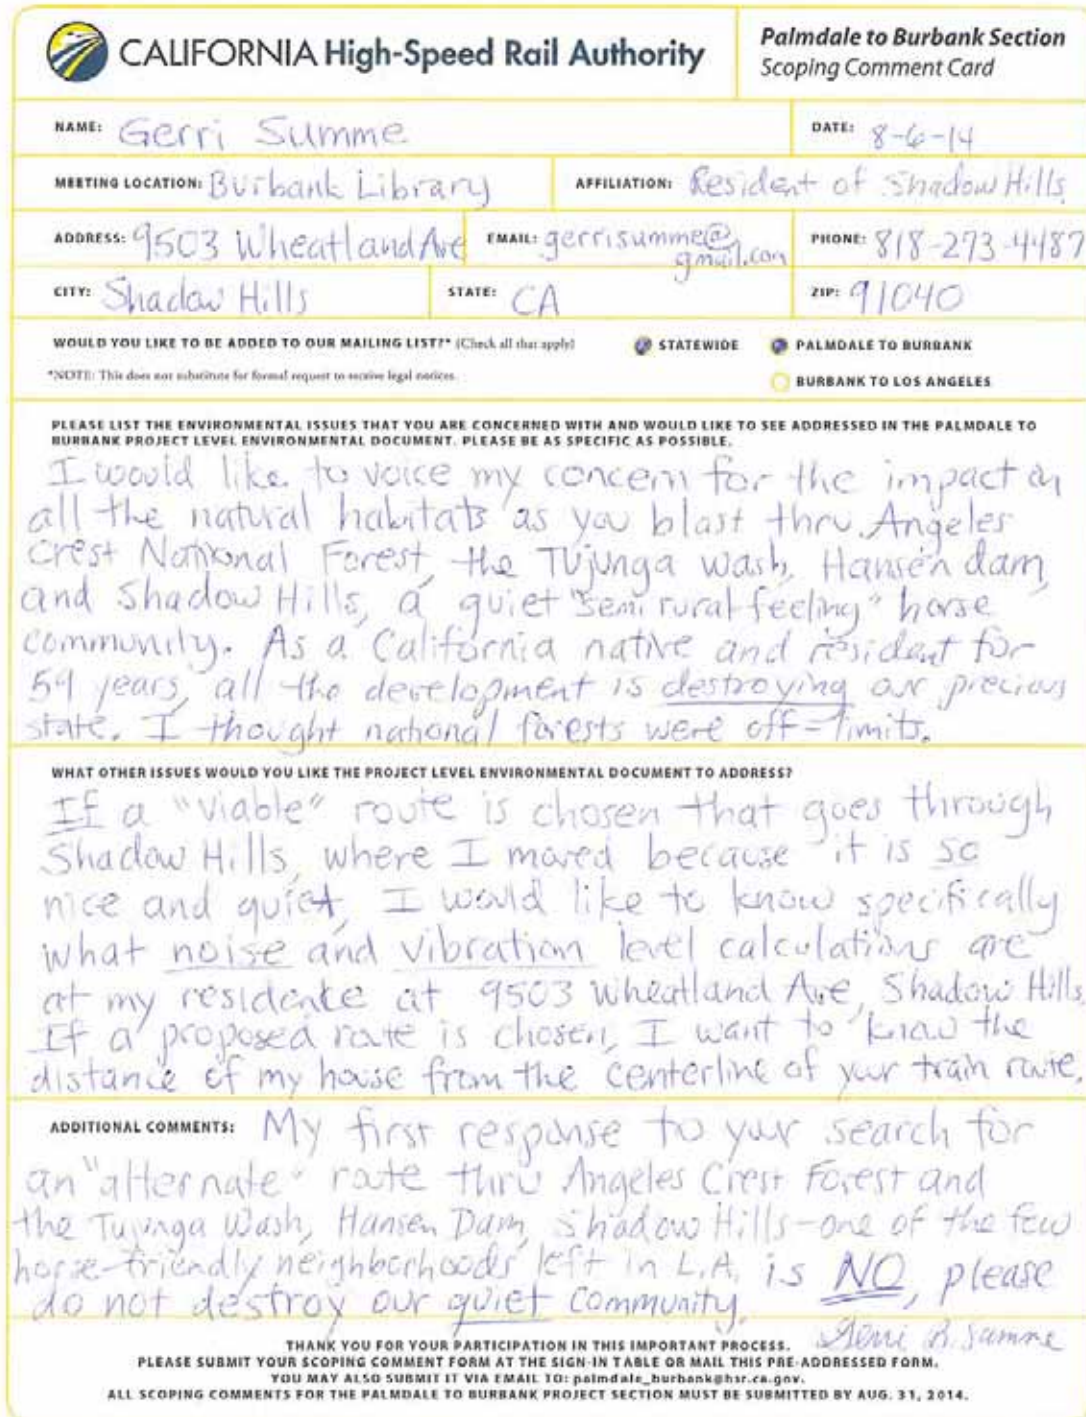 CALIFORNIA High-Speed Rail Authority
Palmdale to Burbank Section
Scoping Comment Card
NAME: Gerri Summe
DATE: 8-6-14
MEETING LOCATION: Burbank Library
AFFILIATION: Resident of Shadow Hills
ADDRESS: 9503 Wheatland Ave
EMAIL: gerrisumme@
gmail.com
PHONE: 818-273-4487
CITY: Shadow Hills
STATE: CA
ZIP: 91040
WOULD YOU LIKE TO BE ADDED TO OUR MAILING LIST?* (Check all that apply)
STATEWIDE
PALMDALE TO BURBANK
*NOTE: This does not substitute for formal request to receive legal notices.
BURBANK TO LOS ANGELES
PLEASE LIST THE ENVIRONMENTAL ISSUES THAT YOU ARE CONCERNED WITH AND WOULD LIKE TO SEE ADDRESSED IN THE PALMDALE TO
BURBANK PROJECT LEVEL ENVIRONMENTAL DOCUMENT. PLEASE BE AS SPECIFIC AS POSSIBLE.
I would like to voice my concern for the impact on
all the natural habitats as you blast thru Angeles
Crest National Forest, the Tujunga wash, Hansen dam,
and Shadow Hills, a quiet "semi rural feeling" horse
community. As a California native and resident for
59 years, all the development is destroying our precious
state. I thought national forests were off-limits.
WHAT OTHER ISSUES WOULD YOU LIKE THE PROJECT LEVEL ENVIRONMENTAL DOCUMENT TO ADDRESS?
If a "viable" route is chosen that goes through
Shadow Hills, where I moved because it is so
nice and quiet, I would like to know specifically
what noise and vibration level calculations are
at my residence at 9503 Wheatland Ave, Shadow Hills.
If a proposed route is chosen, I want to know the
distance of my house from the centerline of your train route.
ADDITIONAL COMMENTS: My first response to your search for
an "alternate" route thru Angeles Crest Forest and
the Tujunga Wash, Hansen Dam, Shadow Hills - one of the few
horse-friendly neighborhoods left in L.A. is NO, please
do not destroy our quiet community.
Gerri B. Summe
THANK YOU FOR YOUR PARTICIPATION IN THIS IMPORTANT PROCESS.
PLEASE SUBMIT YOUR SCOPING COMMENT FORM AT THE SIGN-IN TABLE OR MAIL THIS PRE-ADDRESSED FORM.
YOU MAY ALSO SUBMIT IT VIA EMAIL TO: palmdale_burbank@hsr.ca.gov.
ALL SCOPING COMMENTS FOR THE PALMDALE TO BURBANK PROJECT SECTION MUST BE SUBMITTED BY AUG. 31, 2014.